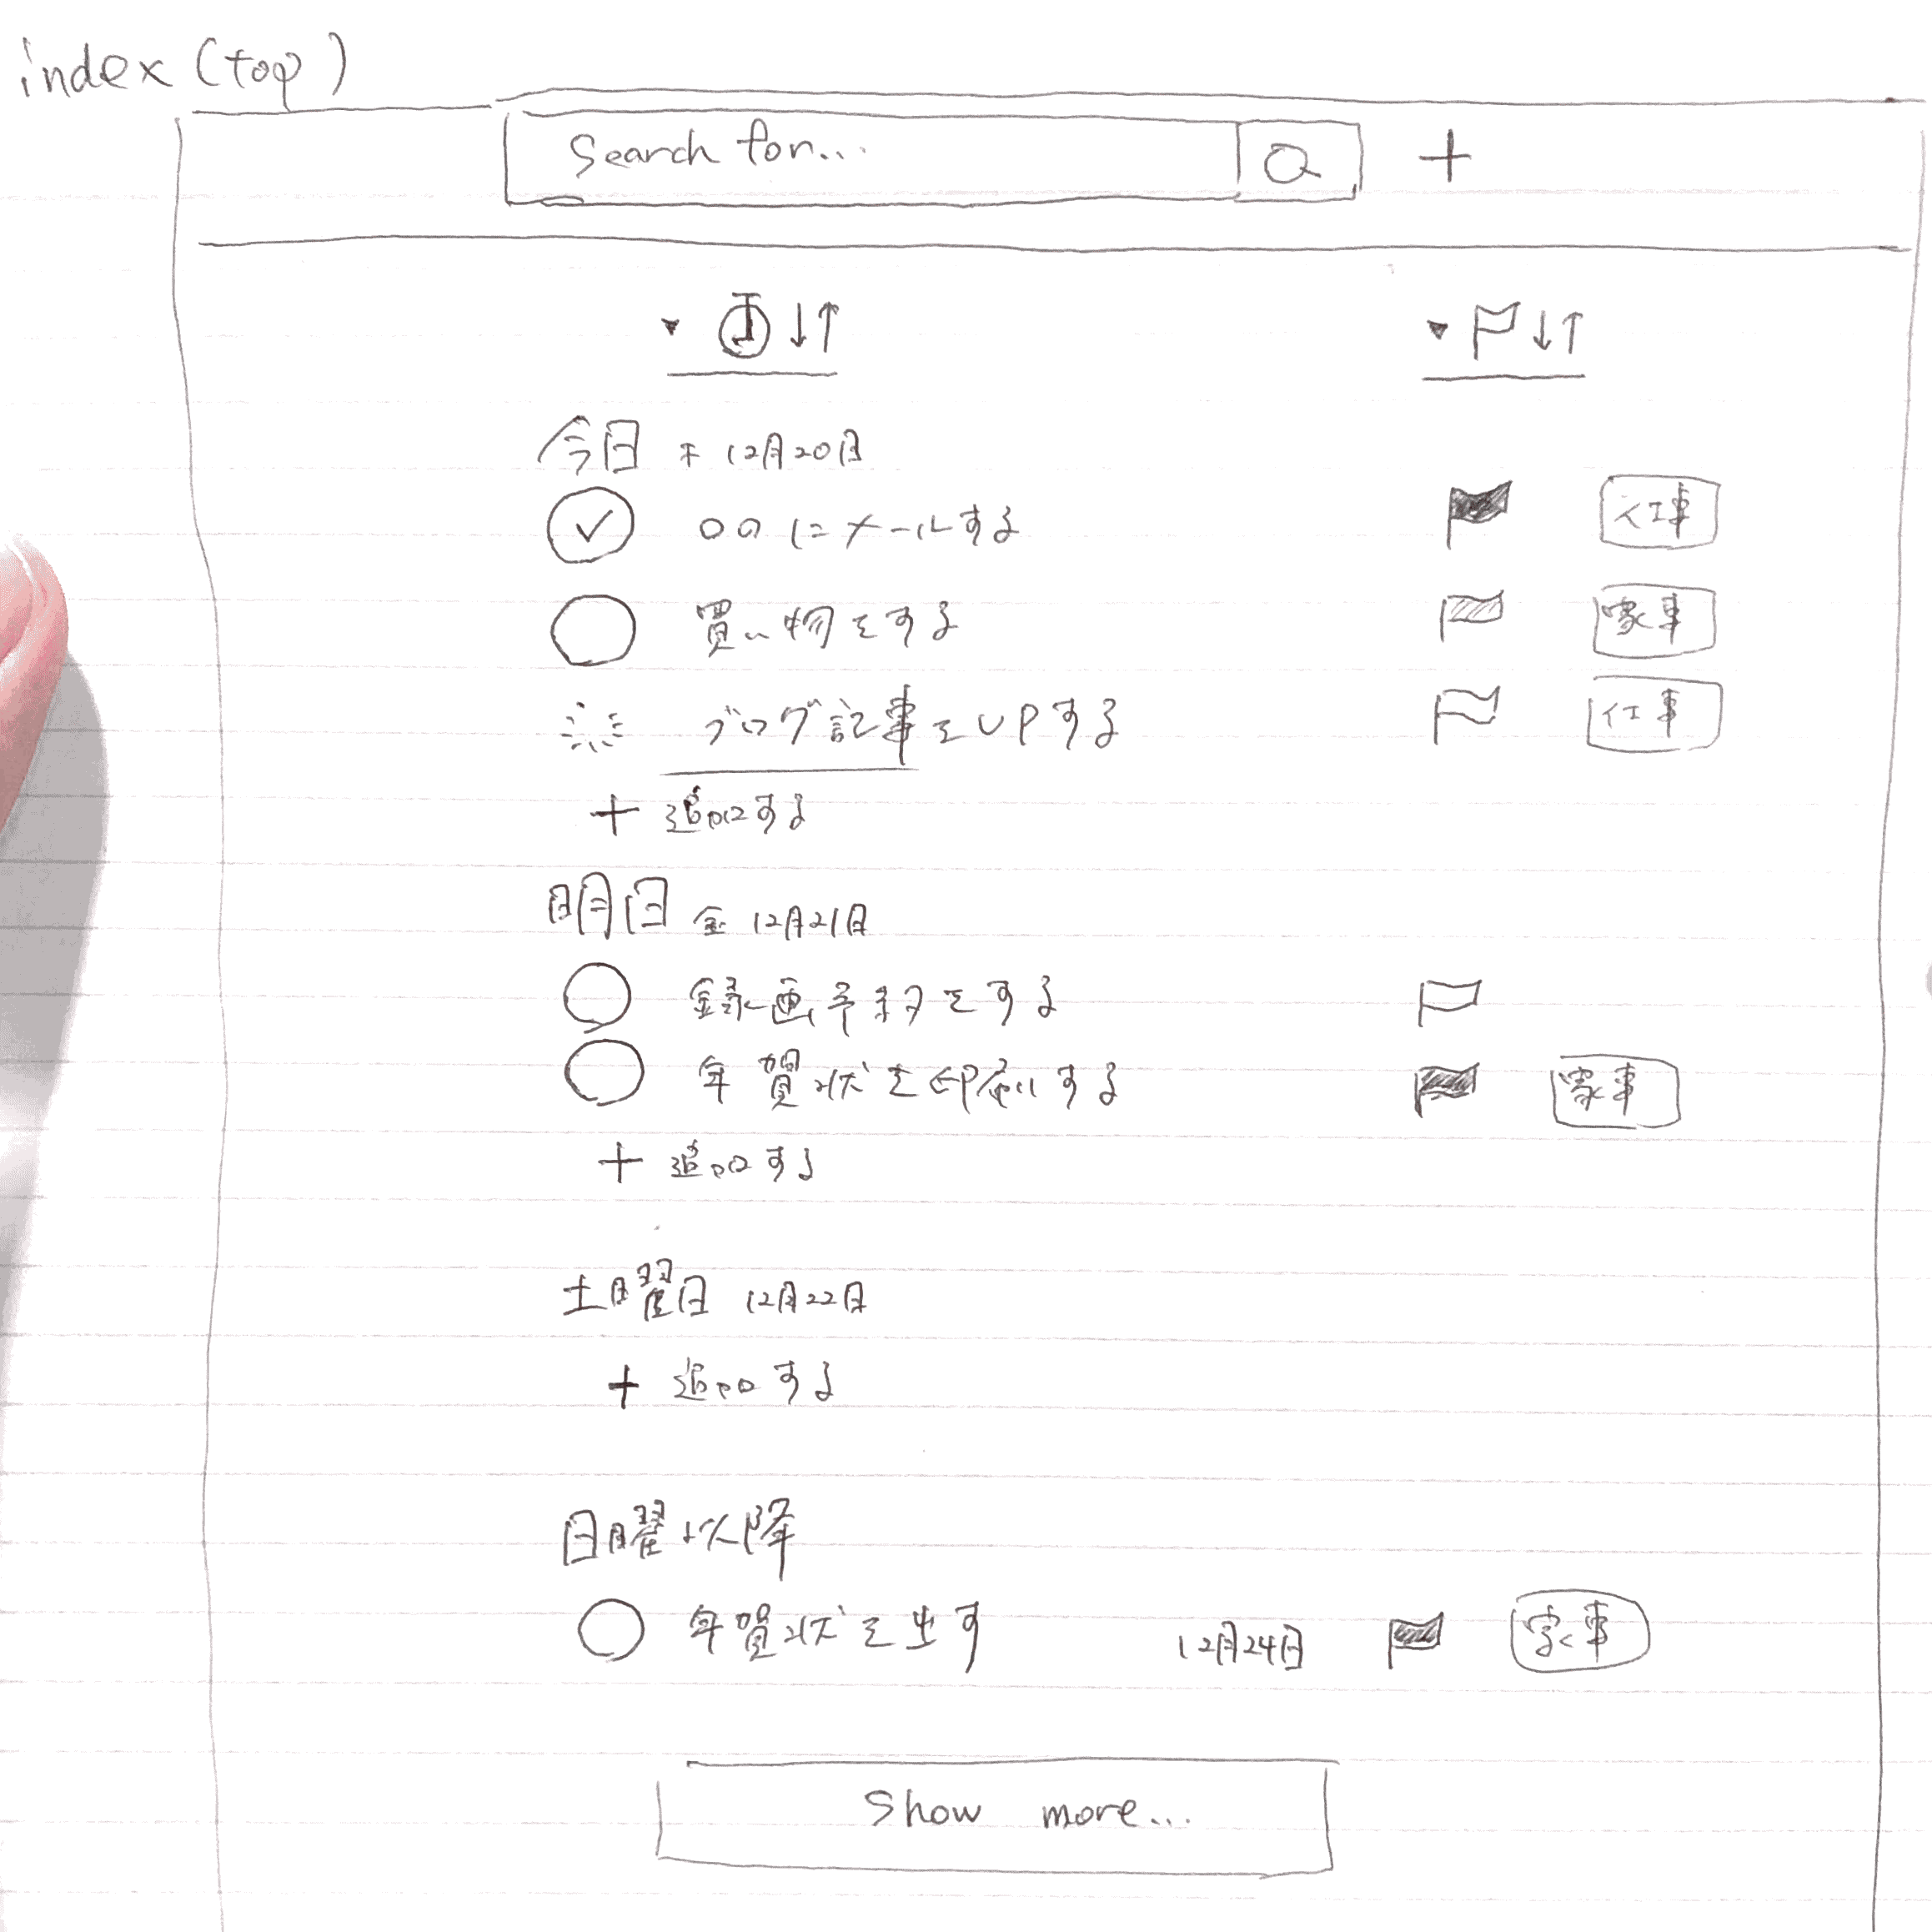 index (top)
Search for... +
↓↑ ↓↑
今日 木 12月20日
○○にメールする 仕事
買い物をする 家事
ブログ記事をUPする 仕事
+ 追加する
明日 金 12月21日
録画予約をする
年賀状を印刷する 家事
+ 追加する
土曜日 12月22日
+ 追加する
日曜以降
年賀状を出す 12月24日 家事
Show more...